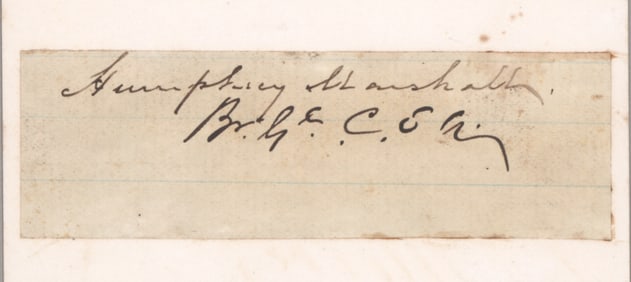 Humphrey Marshall.
Br. Ge. C. S. A.